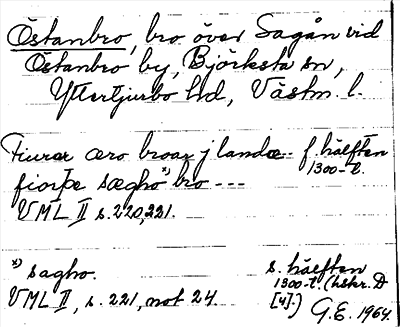 Östanbro, bro över Sagån vid
Östanbro by, Björksta sn,
Yttertjurbo hd, Västm. l.
Fiurar æro broar j landæ-- f. hälften
1300-t.
fiorþe sægho*) bro ---
VML II s. 220, 221.
*) sagho. s. hälften
1300-t. (hskr. D
VML II, s. 221, not 24. [4].)
G.E. 1964.